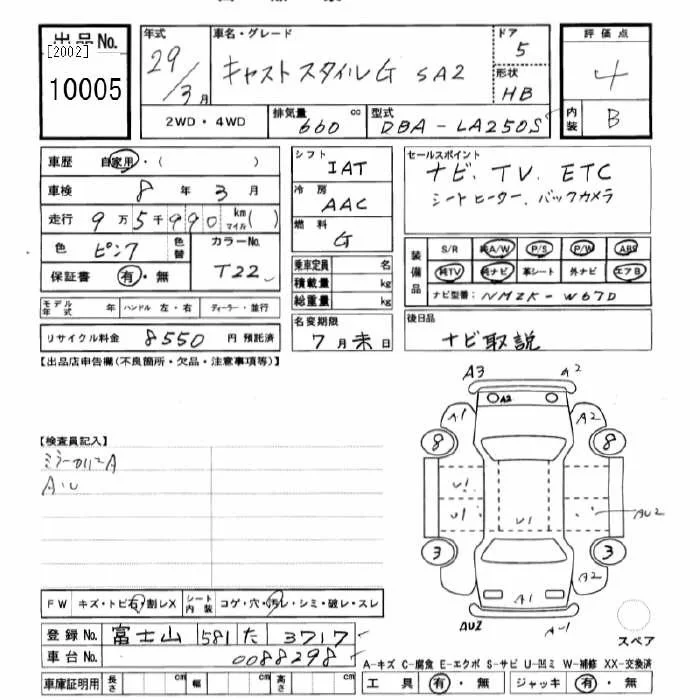 出品No.
[2002]
10005
年式
29/3月
車名・グレード
キャストスタイルG SA2
ドア
5
形状
HB
評価点
4
内装 B
2WD・4WD
排気量 660 cc
型式 DBA-LA250S
車歴 自家用・( )
車検 8年3月
走行 9万5千990 km マイル( )
色 ピンク 色替
カラーNo. T22
保証書 有・無
モデル年式 年 ハンドル 左・右 ディーラー・並行
リサイクル料金 8550 円 預託済
シフト IAT
冷房 AAC
燃料 G
乗車定員 名
積載量 kg
総重量 kg
名変期限
7月末日
セールスポイント
ナビ、TV、ETC
シートヒーター、バックカメラ
装備品
S/R 純A/W P/S P/W ABS
純TV 純ナビ 革シート 外ナビ エアB
ナビ型番: NMZK-W67D
後日品
ナビ取説
【出品店申告欄(不良箇所・欠品・注意事項等)】
【検査員記入】
A・U
A3 A2
A2
A1 A2
8 8
U1
U1 U1 AU2
3 3
A1
AU2 A・U1
スペア
FW キズ・トビ石・割レX
シート内装 コゲ・穴・汚レ・シミ・破レ・スレ
登録No. 富士山 581 た 3717
車台No. 0088298
車庫証明用 長さ cm 幅 cm 高さ cm
A-キズ C-腐食 E-エクボ S-サビ U-凹ミ W-補修 XX-交換済
工具 有・無 ジャッキ 有・無